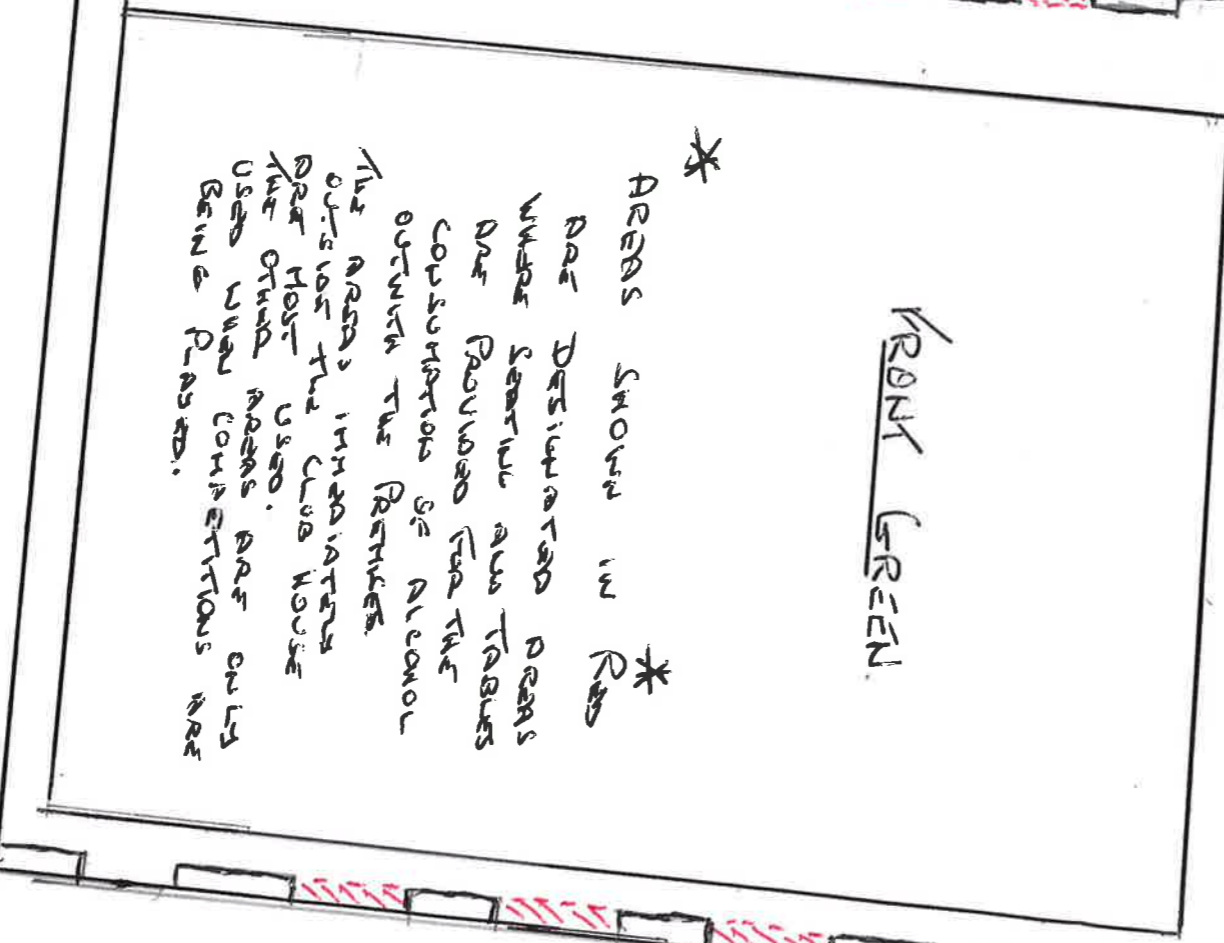 FRONT GREEN
* AREAS SHOWN IN RED *
ARE DESIGNATED AREAS
WHERE SEATING AND TABLES
ARE PROVIDED FOR THE
CONSUMPTION OF ALCOHOL
OUTWITH THE PREMISES
THE AREAS IMMEDIATELY
OUTSIDE THE CLUB HOUSE
ARE MOST USED.
THE OTHER AREAS ARE ONLY
USED WHEN COMPETITIONS ARE
BEING PLAYED.